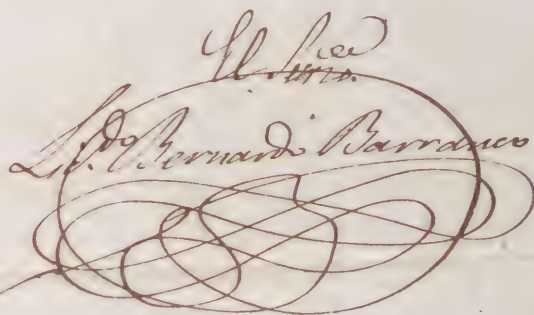 El
L.do Bernardo Barranco